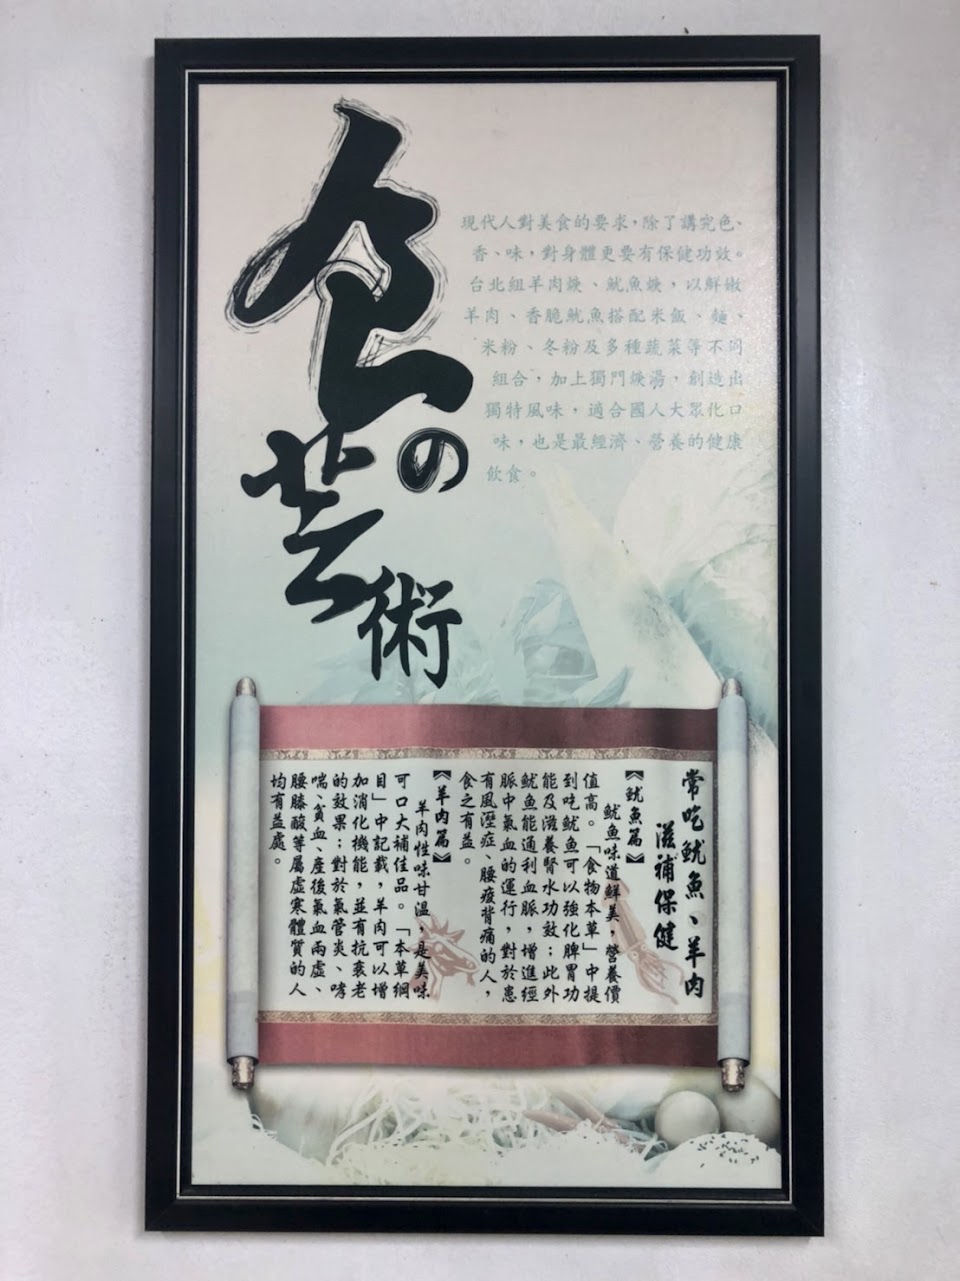 食の芸術
現代人對美食的要求,除了講究色、
香、味,對身體更要有保健功效。
台北紐羊肉焿、魷魚焿,以鮮嫩
羊肉、香脆魷魚搭配米飯、麵、
米粉、冬粉及多種蔬菜等不同
組合,加上獨門焿湯,創造出
獨特風味,適合國人大眾化口
味,也是最經濟、營養的健康
飲食。
常吃魷魚、羊肉
滋補保健
《魷魚篇》
魷魚味道鮮美,營養價
值高。「食物本草」中提
到吃魷魚可以強化脾胃功
能及滋養腎水功效;此外
魷魚能通利血脈,增進經
脈中氣血的運行,對於患
有風溼症、腰痠背痛的人,
食之有益。
《羊肉篇》
羊肉性味甘溫,是美味
可口大補佳品。「本草綱
目」中記載,羊肉可以增
加消化機能,並有抗衰老
的效果;對於氣管炎、哮
喘、貧血、產後氣血兩虛、
腰膝酸等屬虛寒體質的人
均有益處。